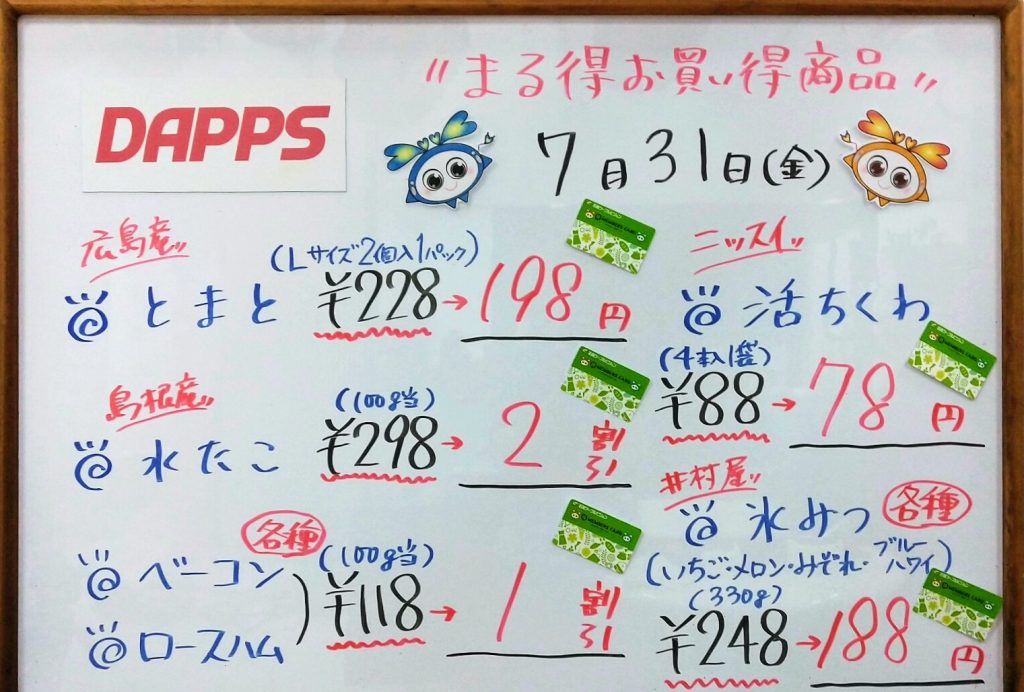 "まる得お買い得商品"
DAPPS
7月31日(金)
広島産
@ とまと
(Lサイズ2個入1パック)
¥228→198円
島根産
@ 水たこ
(100g当)
¥298→2割引
各種
@ ベーコン
@ ロースハム
(100g当)
¥118→1割引
ニッスイ
@ 活ちくわ
(4本1袋)
¥88→78円
井村屋
@ 氷みつ 各種
(いちご・メロン・みぞれ・ブルーハワイ)
(330g)
¥248→188円
MEMBERS CARD
MEMBERS CARD
MEMBERS CARD
MEMBERS CARD
MEMBERS CARD